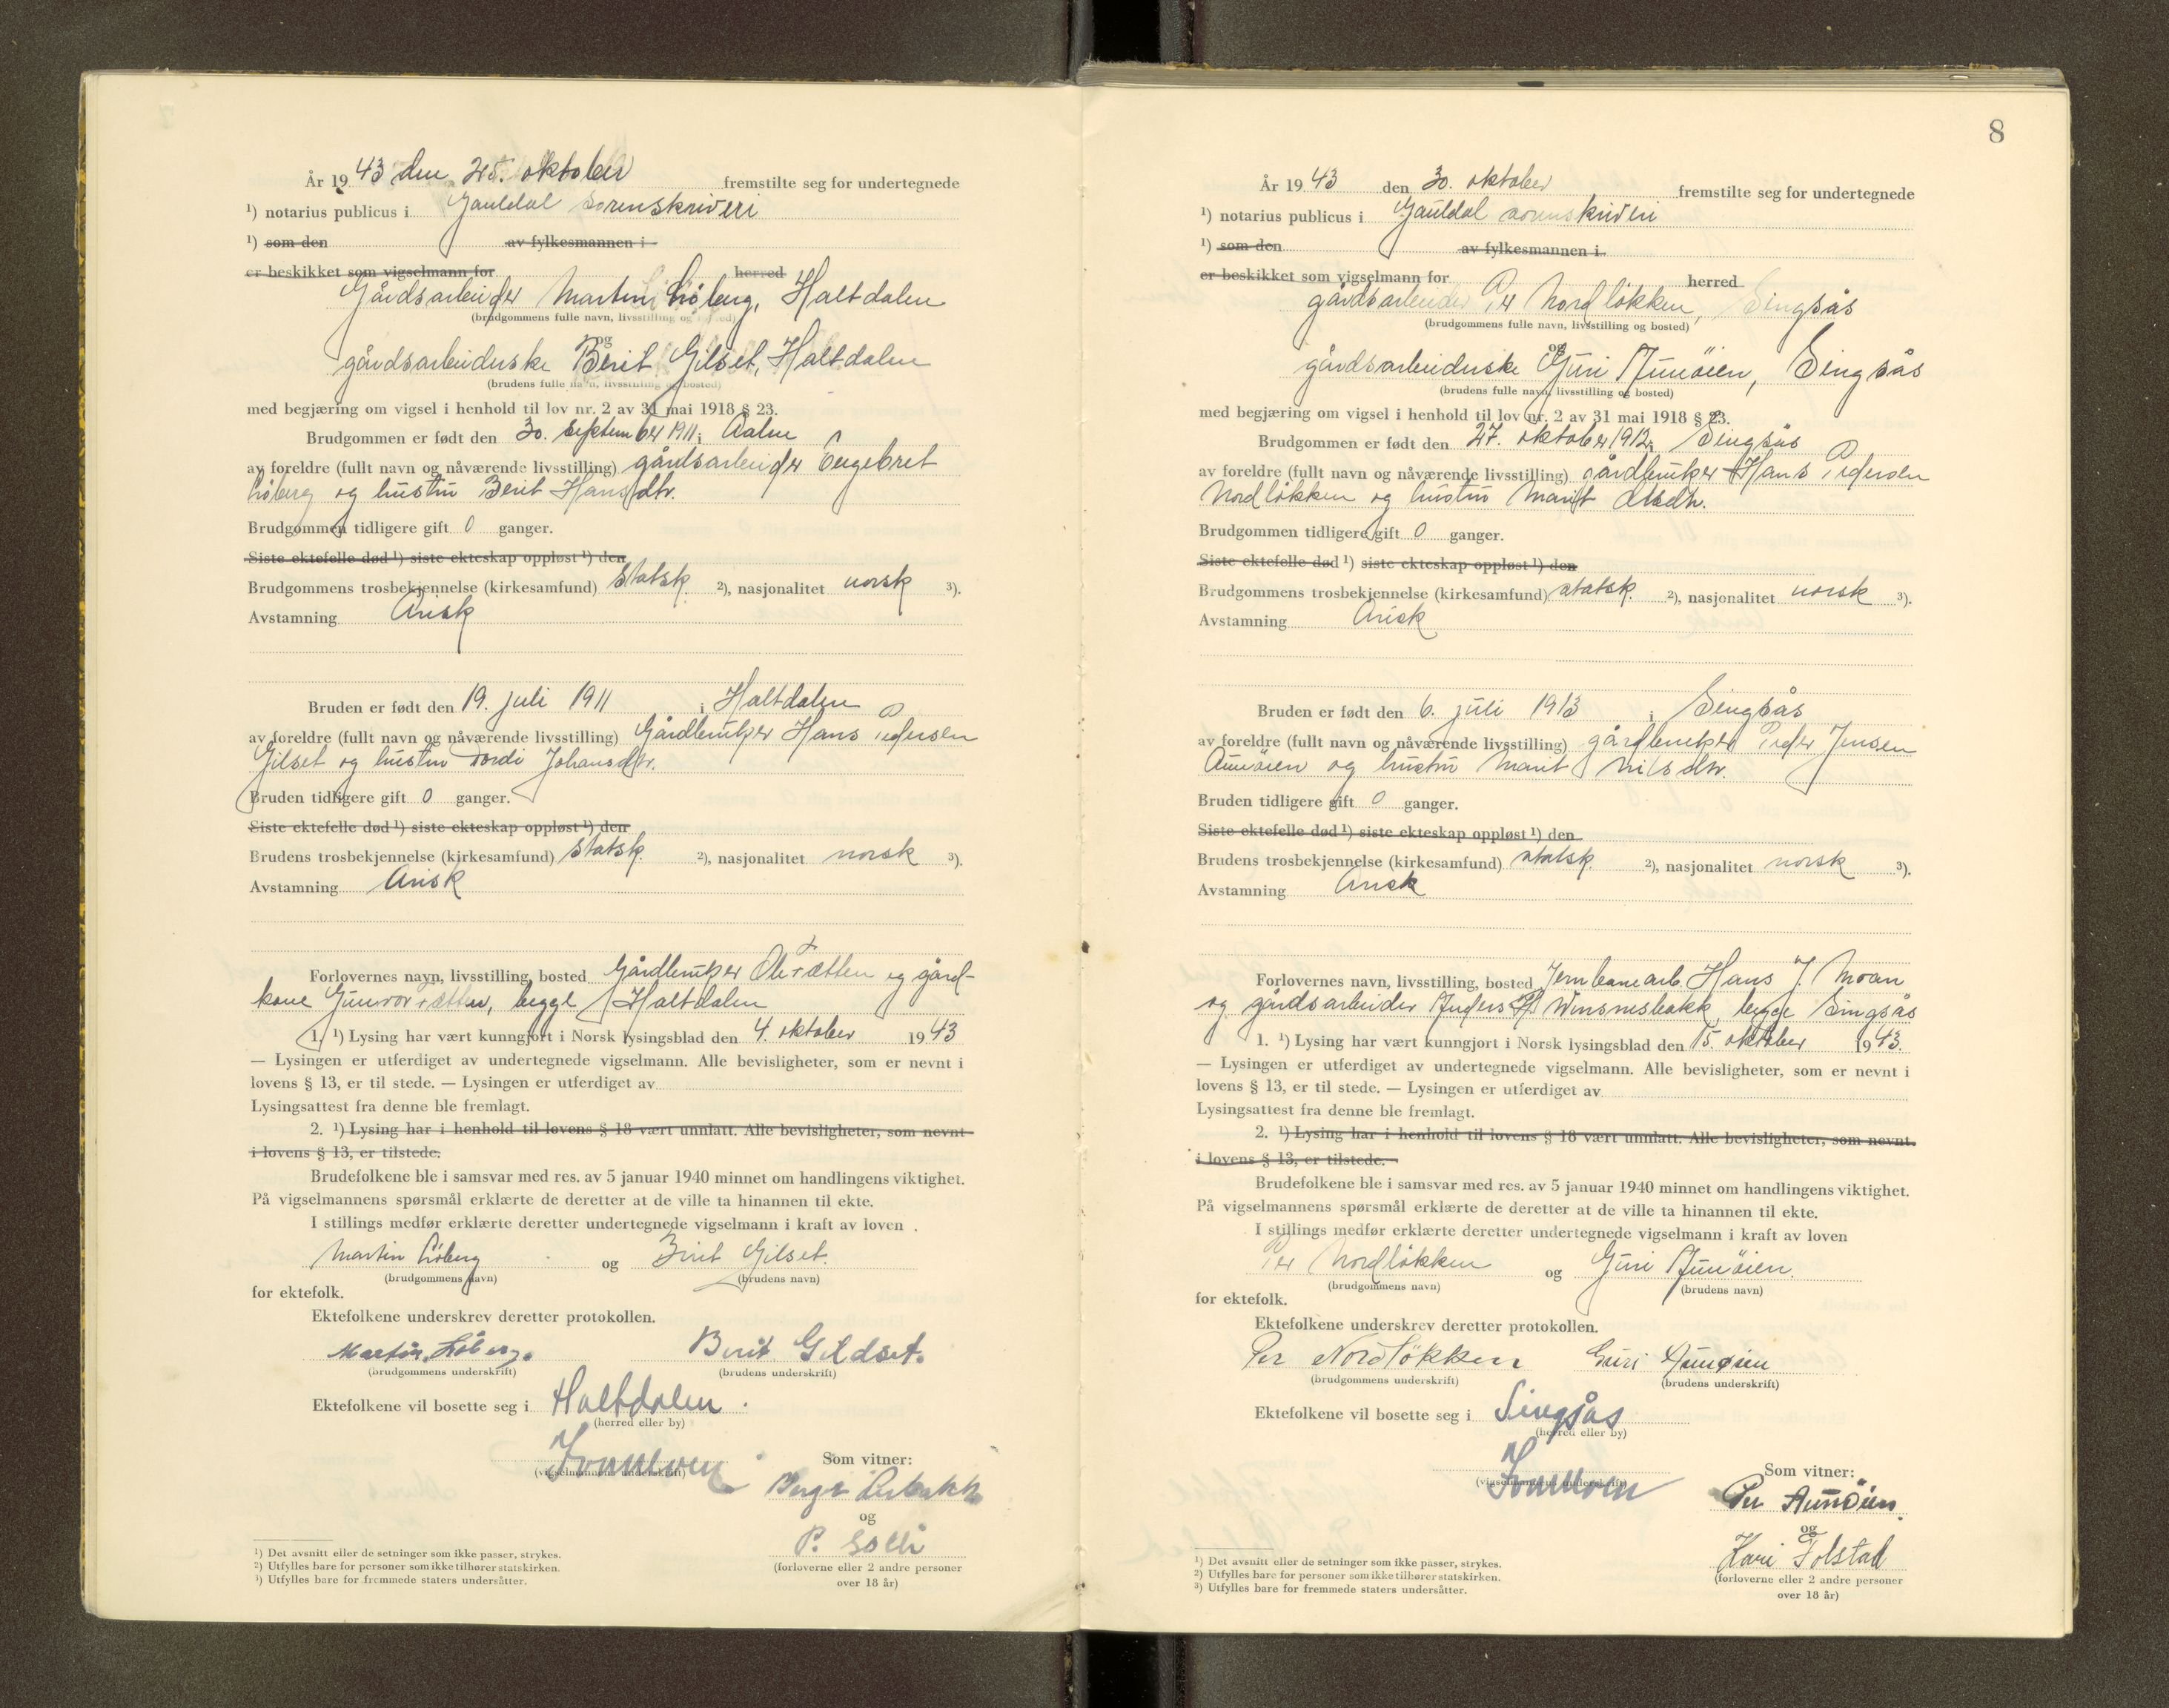 År 1943 den 25. oktober fremstilte seg for undertegnede
¹) notarius publicus i Gauldal sorenskriveri
¹) som den av fylkesmannen i
er beskikket som vigselmann for herred
Gårdsarbeider Martin Löberg, Haltdalen
(brudgommens fulle navn, livsstilling og bosted)
og
gårdsarbeiderske Berit Gilset, Haltdalen
(brudens fulle navn, livsstilling og bosted)
med begjæring om vigsel i henhold til lov nr. 2 av 31 mai 1918 § 23.
Brudgommen er født den 30. september 1911 i Aalen
av foreldre (fullt navn og nåværende livsstilling) gårdsarbeider Engebret
Löberg og hustru Berit Hansdtr.
Brudgommen tidligere gift 0 ganger.
Siste ektefelle død ¹) siste ekteskap oppløst ¹) den
Brudgommens trosbekjennelse (kirkesamfund) Statsk. ²), nasjonalitet norsk ³).
Avstamning Arisk
Bruden er født den 19. juli 1911 i Haltdalen
av foreldre (fullt navn og nåværende livsstilling) Gårdbruker Hans Pedersen
Gilset og hustru Tordi Johansdtr.
Bruden tidligere gift 0 ganger.
Siste ektefelle død ¹) siste ekteskap oppløst ¹) den
Brudens trosbekjennelse (kirkesamfund) Statsk. ²), nasjonalitet norsk ³).
Avstamning Arisk
Forlovernes navn, livsstilling, bosted Gårdbruker Ole Tætten og gård-
kone Gunvor Tætten, begge Haltdalen
1. ¹) Lysing har vært kunngjort i Norsk lysingsblad den 4. oktober 1943
— Lysingen er utferdiget av undertegnede vigselmann. Alle bevisligheter, som er nevnt i
lovens § 13, er til stede. — Lysingen er utferdiget av
Lysingsattest fra denne ble fremlagt.
2. ¹) Lysing har i henhold til lovens § 18 vært unnlatt. Alle bevisligheter, som nevnt
i lovens § 13, er tilstede.
Brudefolkene ble i samsvar med res. av 5 januar 1940 minnet om handlingens viktighet.
På vigselmannens spørsmål erklærte de deretter at de ville ta hinannen til ekte.
I stillings medfør erklærte deretter undertegnede vigselmann i kraft av loven .
Martin Löberg og Berit Gilset.
(brudgommens navn) (brudens navn)
for ektefolk.
Ektefolkene underskrev deretter protokollen.
Martin Löberg. Berit Gildset.
(brudgommens underskrift) (brudens underskrift)
Ektefolkene vil bosette seg i Haltdalen.
(herred eller by)
Som vitner:
(vigselmannens underskrift)
og
P. Solli
(forloverne eller 2 andre personer
over 18 år)
¹) Det avsnitt eller de setninger som ikke passer, strykes.
²) Utfylles bare for personer som ikke tilhører statskirken.
³) Utfylles bare for fremmede staters undersåtter.
8
År 1943 den 30. oktober fremstilte seg for undertegnede
¹) notarius publicus i Gauldal sorenskriveri
¹) som den av fylkesmannen i
er beskikket som vigselmann for herred
gårdsarbeider Per Nordlökken, Singsås
(brudgommens fulle navn, livsstilling og bosted)
og
gårdsarbeiderske Guri Aunöien, Singsås
(brudens fulle navn, livsstilling og bosted)
med begjæring om vigsel i henhold til lov nr. 2 av 31 mai 1918 § 23.
Brudgommen er født den 27. oktober 1912 i Singsås
av foreldre (fullt navn og nåværende livsstilling) gårdbruker Hans Pedersen
Nordlökken og hustru Marit Olsdtr.
Brudgommen tidligere gift 0 ganger.
Siste ektefelle død ¹) siste ekteskap oppløst ¹) den
Brudgommens trosbekjennelse (kirkesamfund) statsk. ²), nasjonalitet norsk ³).
Avstamning Arisk
Bruden er født den 6. juli 1913 i Singsås
av foreldre (fullt navn og nåværende livsstilling) gårdbruker Peder Jensen
Aunöien og hustru Marit Nilsdtr.
Bruden tidligere gift 0 ganger.
Siste ektefelle død ¹) siste ekteskap oppløst ¹) den
Brudens trosbekjennelse (kirkesamfund) statsk. ²), nasjonalitet norsk ³).
Avstamning Arisk
Forlovernes navn, livsstilling, bosted Jernbanearb. Hans J. Moan
og gårdsarbeider Anders Winsnesbakk, begge Singsås
1. ¹) Lysing har vært kunngjort i Norsk lysingsblad den 15. oktober 1943.
— Lysingen er utferdiget av undertegnede vigselmann. Alle bevisligheter, som er nevnt i
lovens § 13, er til stede. — Lysingen er utferdiget av
Lysingsattest fra denne ble fremlagt.
2. ¹) Lysing har i henhold til lovens § 18 vært unnlatt. Alle bevisligheter, som nevnt.
i lovens § 13, er tilstede.
Brudefolkene ble i samsvar med res. av 5 januar 1940 minnet om handlingens viktighet.
På vigselmannens spørsmål erklærte de deretter at de ville ta hinannen til ekte.
I stillings medfør erklærte deretter undertegnede vigselmann i kraft av loven
Per Nordlökken og Guri Aunöien.
(brudgommens navn) (brudens navn)
for ektefolk.
Ektefolkene underskrev deretter protokollen.
Per Nordlökken Guri Aunøien
(brudgommens underskrift) (brudens underskrift)
Ektefolkene vil bosette seg i Singsås
(herred eller by)
Som vitner:
(vigselmannens underskrift)
Per Aunöien.
og
Kari Folstad
(forloverne eller 2 andre personer
over 18 år)
¹) Det avsnitt eller de setninger som ikke passer, strykes.
²) Utfylles bare for personer som ikke tilhører statskirken.
³) Utfylles bare for fremmede staters undersåtter.